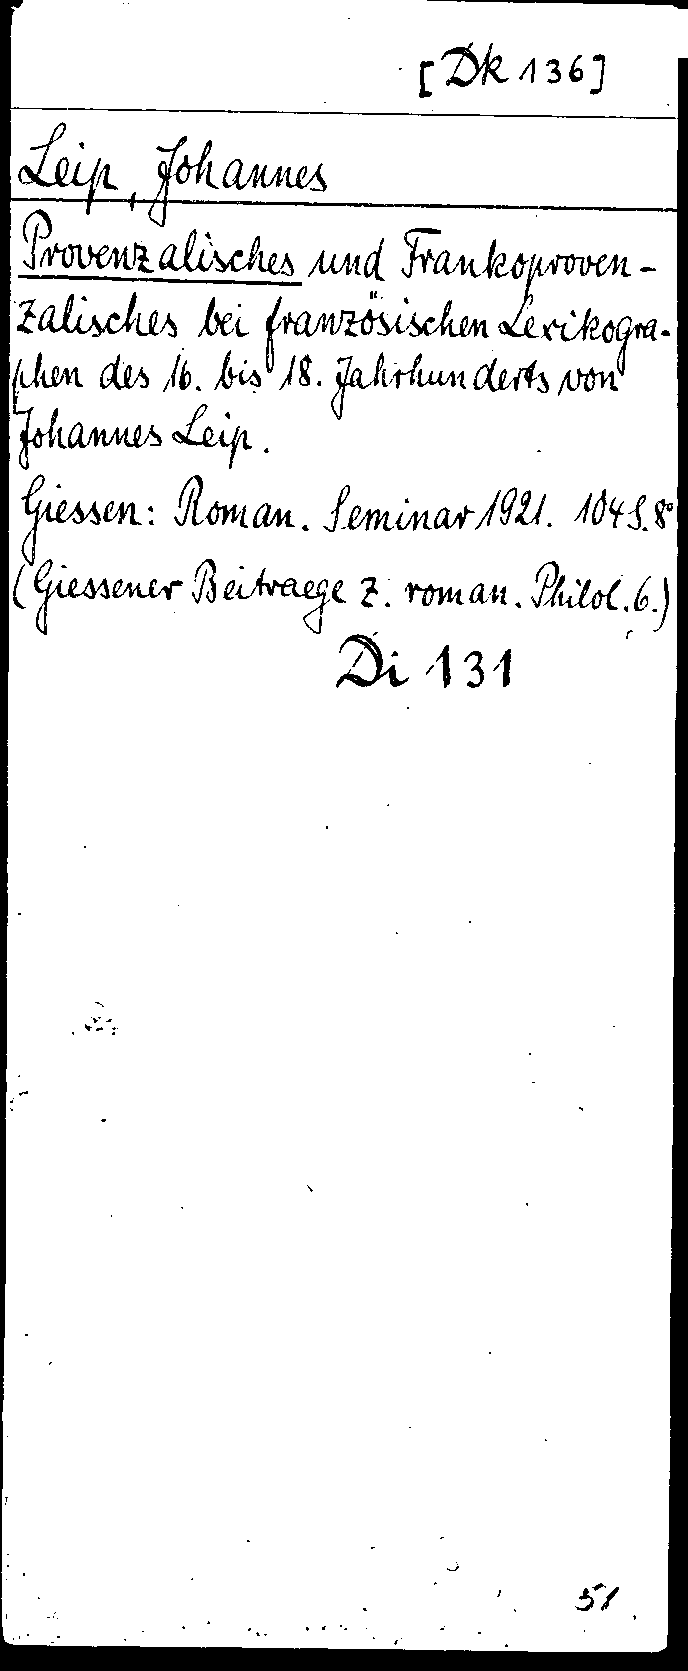 [Dk 136]
Leip, Johannes
Provenzalisches und Frankoproven-
zalisches bei französischen Lexikogra-
phen des 16. bis 18. Jahrhunderts von
Johannes Leip.
Giessen: Roman. Seminar 1921. 104 S. 8°
(Giessener Beitraege z. roman. Philol. 6.)
Di 131
51